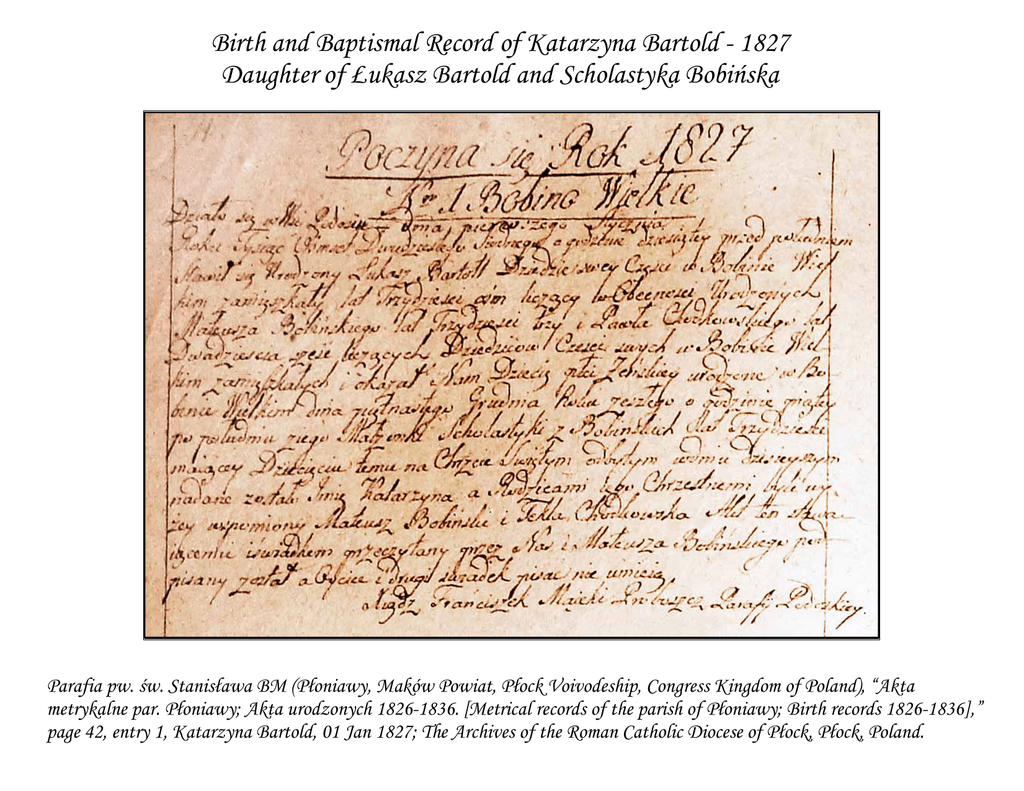 Birth and Baptismal Record of Katarzyna Bartold - 1827
Daughter of Łukasz Bartold and Scholastyka Bobińska
Poczyna się Rok 1827
Nro 1 Bobino Wielkie
Działo się w Wsi dnia pierwszego Stycznia
Roku Tysiąc Ośmset Dwudziestego Siodmego o godzinie dziesiątey przed południem
Stawił się Urodzony Łukasz Bartołt Dziedzic Części w Bobinie Wiel
kim zamięszkały lat Trzydzieści ośm liczący w Obecności Urodzonych
Mateusza Bobińskiego lat Trzydzieści trzy i Pawła Chodkowskiego lat
Dwadzieścia sześć liczących Dziedziców Części swych w Bobinie Wiel
kim zamięszkałych i okazał Nam Dziecię płci Żeńskiey urodzone w Bo
binie Wielkim dnia piętnastego Grudnia Roku zeszłego o godzinie piątey
po południu z iego Małżonki Scholastyki z Bobińskich lat Trzydzieści
maiącey Dziecięciu temu na Chrzcie Świętym odbytym w dniu dzisieyszym
nadane zostało Imię Katarzyna a Rodzicami iego Chrzestnemi byli wy
żey wspomiony Mateusz Bobiński i Tekla Chodkowska Akt ten stawa
iącemu i świadkom przeczytany przez Nas i Mateusza Bobińskiego pod
pisany został a Oyciec i drugi świadek pisać nie umieią
Xiądz Franciszek Proboszcz Parafij
Parafia pw. św. Stanisława BM (Płoniawy, Maków Powiat, Płock Voivodeship, Congress Kingdom of Poland), “Akta
metrykalne par. Płoniawy; Akta urodzonych 1826-1836. [Metrical records of the parish of Płoniawy; Birth records 1826-1836],”
page 42, entry 1, Katarzyna Bartold, 01 Jan 1827; The Archives of the Roman Catholic Diocese of Płock, Płock, Poland.